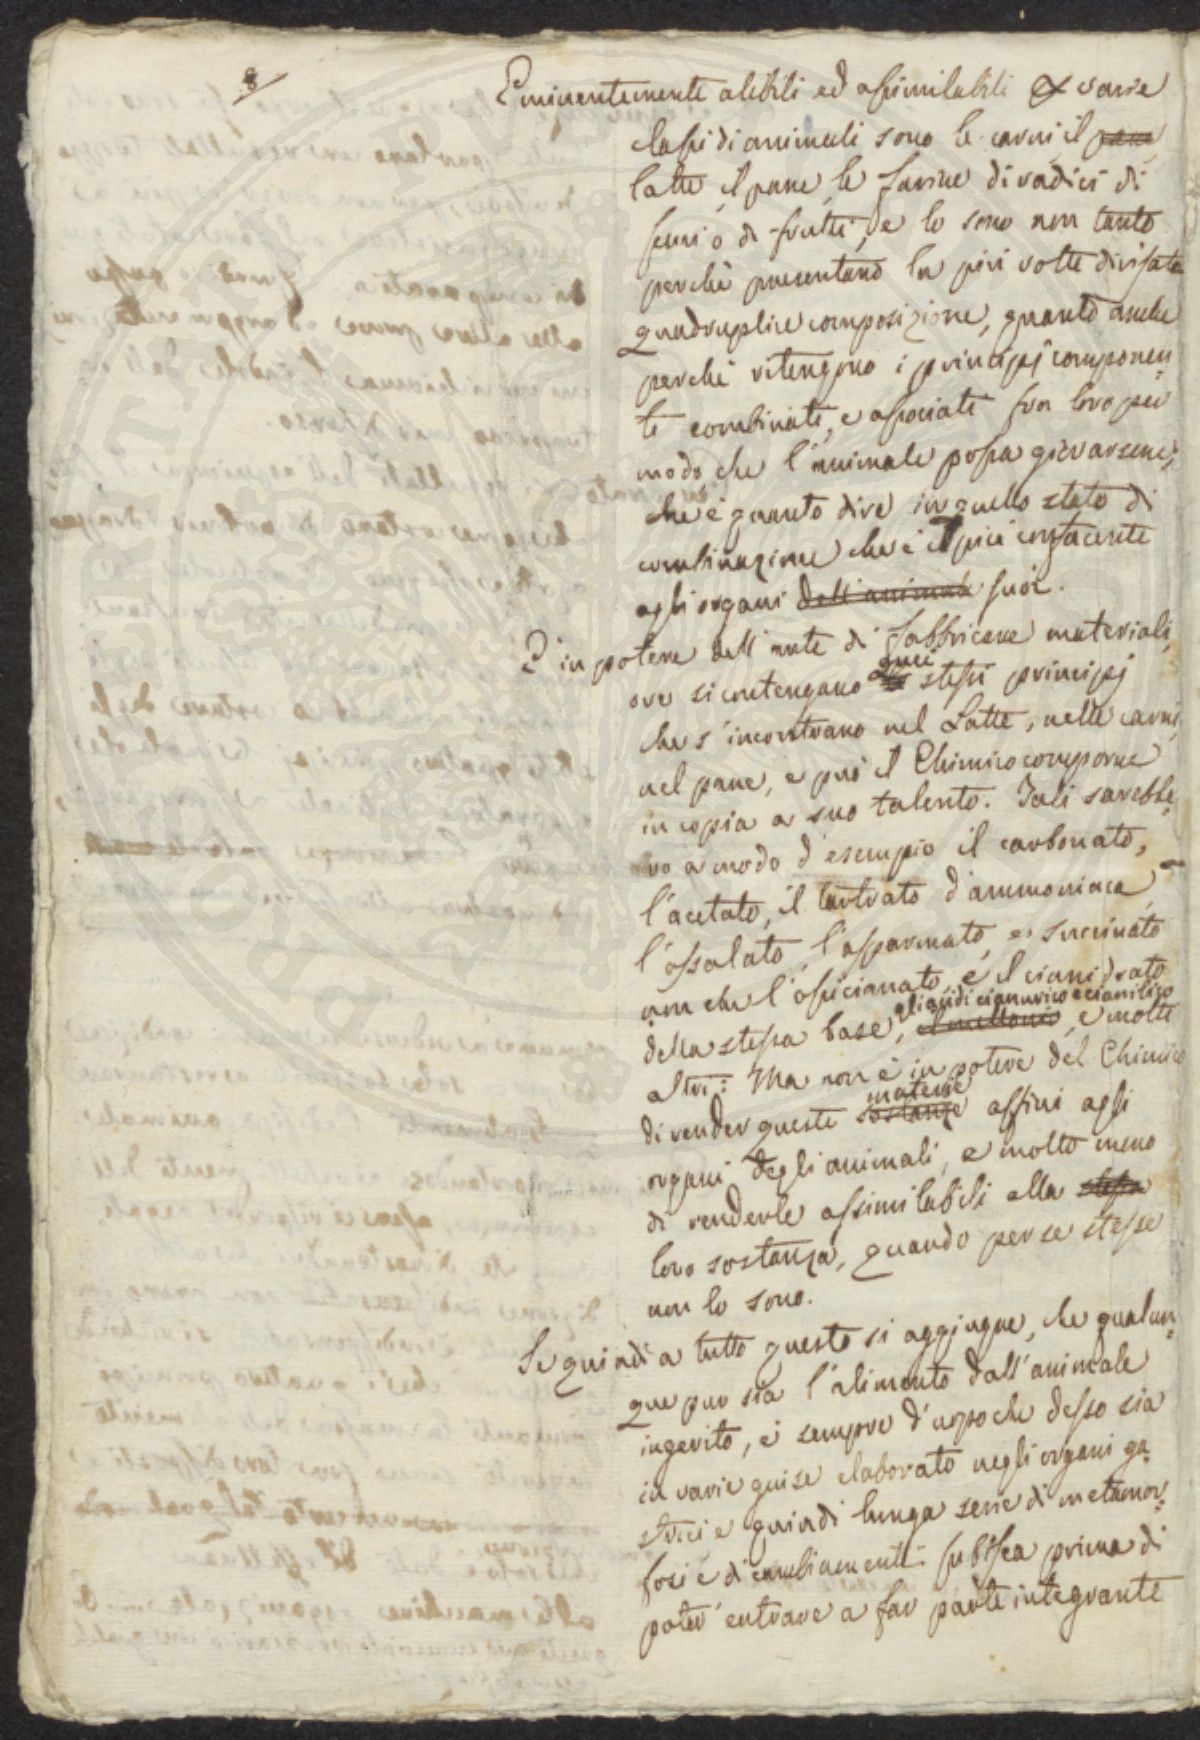 8
Eminentemente alibili ed assimilabili a varie
classi di animali sono le carni, il pane
latte, il pane, le farine di radici di
semi o di frutti, e lo sono non tanto
perchè presentano la più volte divisata
quadruplice composizione, quanto anche
perchè ritengono i principj componen-
ti combinati, e associati fra loro per
modo che l'animale possa giovarsene,
che è quanto dire in quello stato di
combinazione che è il più confacente
agli organi dell'animale suoi.
È in potere dell'arte di fabbricare materiali,
ove si contengano quei stessi principj
che s'incontrano nel Latte, nelle carni,
nel pane, e può il Chimico comporne
in copia a suo talento. Tali sarebbe-
ro a modo d'esempio il carbonato,
l'acetato, il tartrato d'ammoniaca,
l'ossalato, l'asparmato, e succinato
non che l' e il cianidrato
della stessa base, gli acidi cianurico e cianilico, e molti
altri: Ma non è in potere del Chimico
di render queste sostanze materie affini agli
organi degli animali, e molto meno
di renderle assimilabili alla stessa
loro sostanza, quando per se stesse
non lo sono.
Se quindi a tutto questo si aggiugne, che qualun-
que pur sia l'alimento dall'animale
ingerito, è sempre d'uopo che desso sia
in varie guise elaborato negli organi ga-
strici e quindi lunga serie di metamor-
fosi e di cambiamenti subisca prima di
poter entrare a far parte integrante